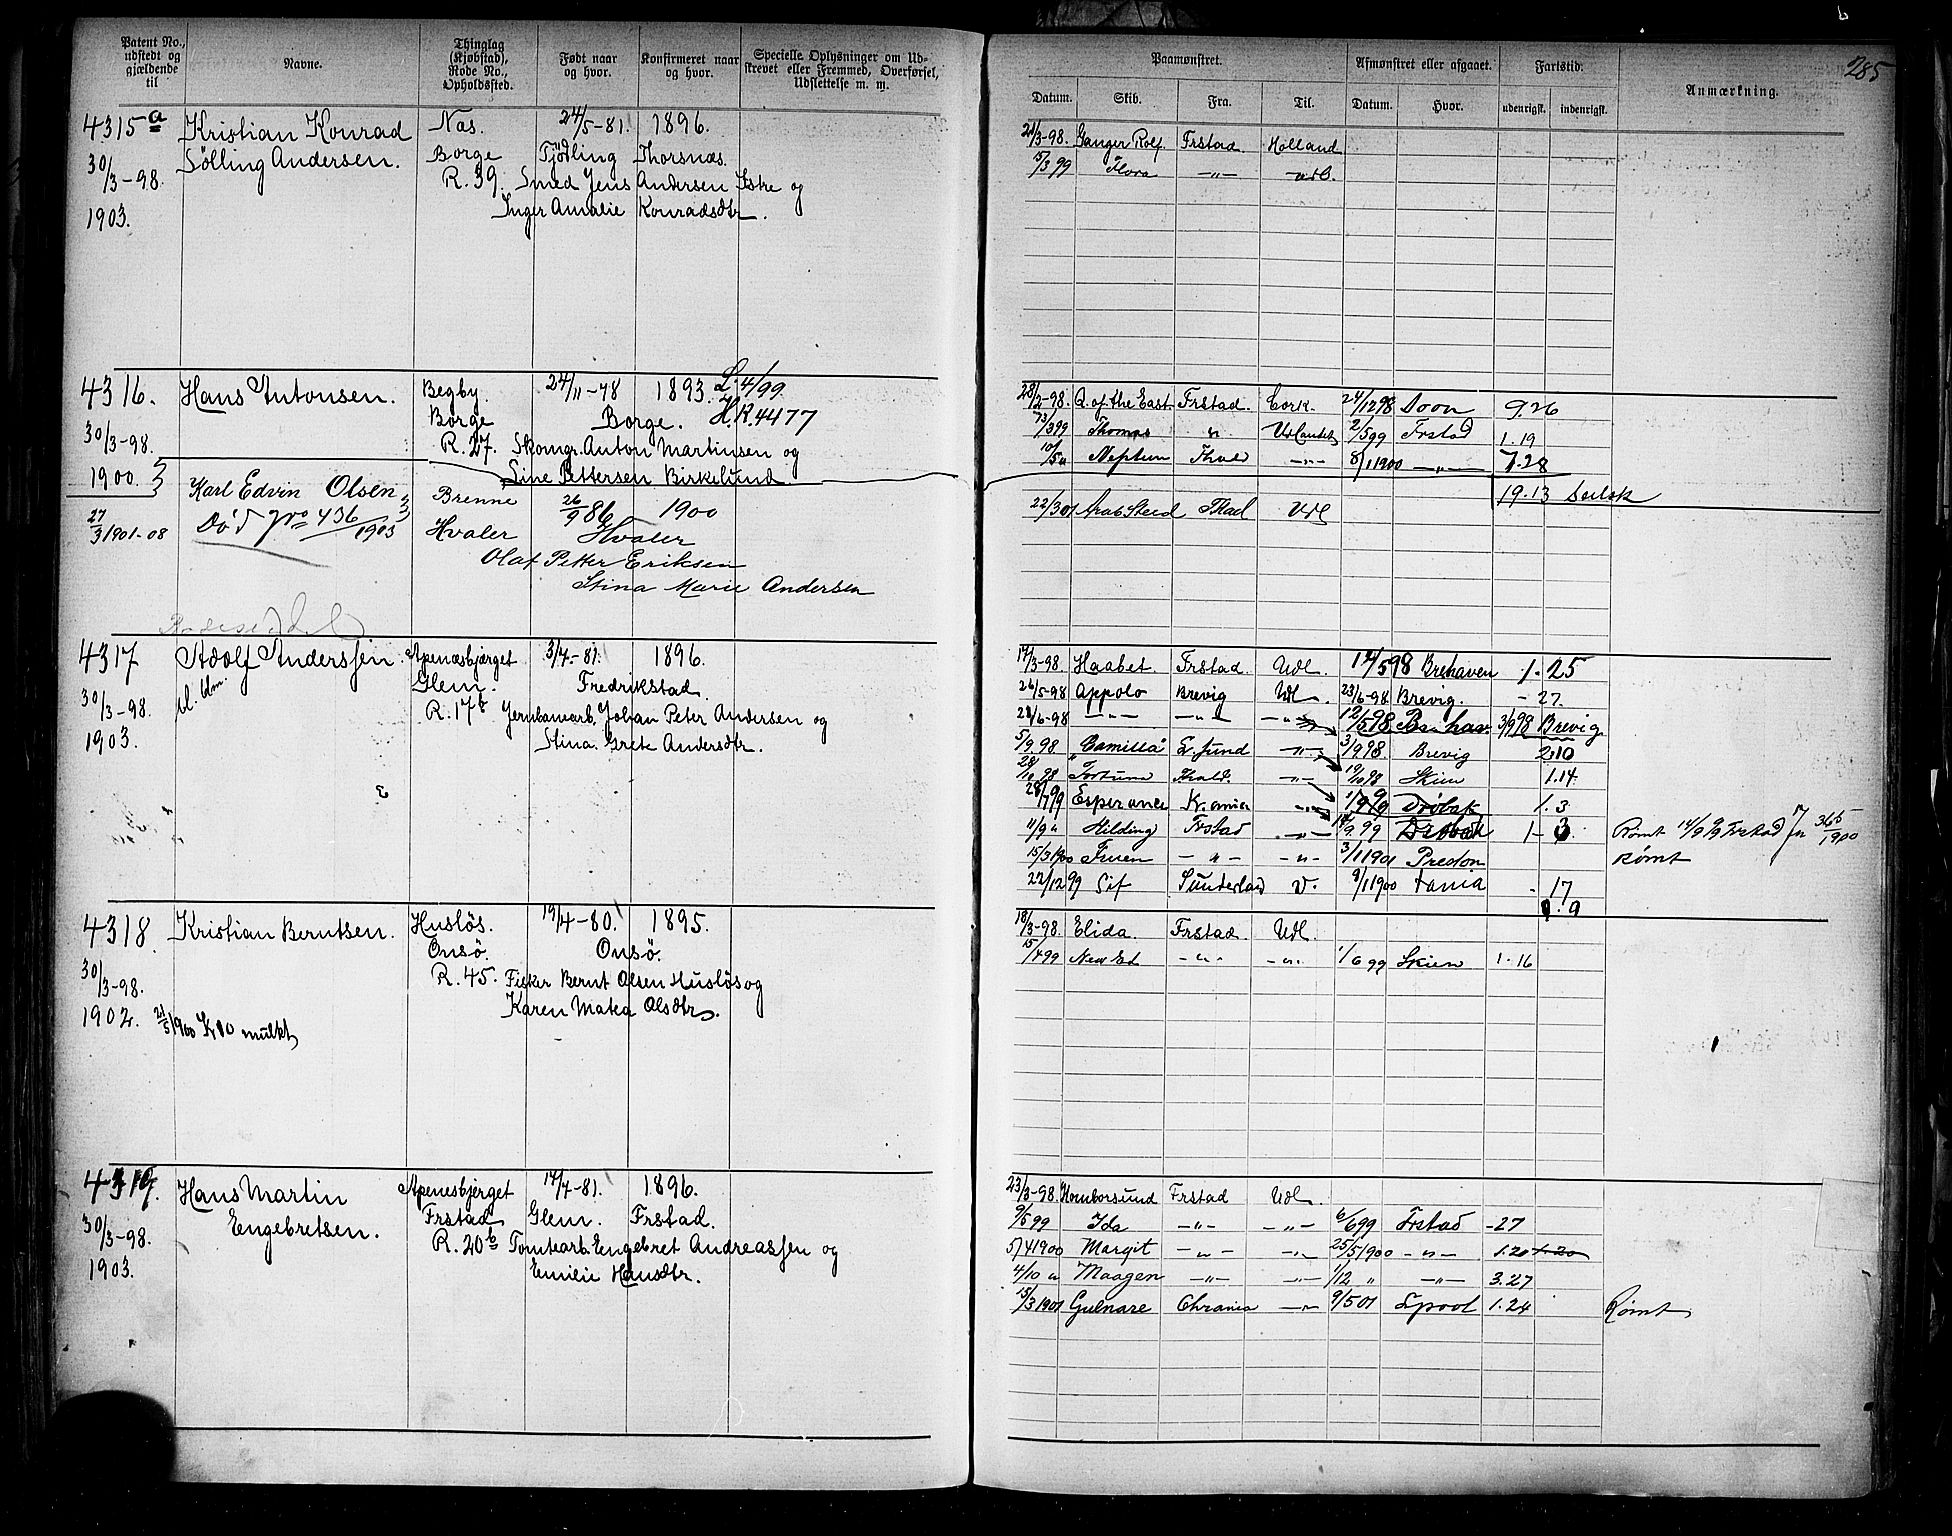 285
Patent No., udstedt og gjældende til
Navne.
Thinglag (Kjøbstad), Rode No., Opholdssted.
Født naar og hvor.
Konfirmeret naar og hvor.
Specielle Oplysninger om Udskrevet eller Fremmed, Overførsel, Udslettelse m. m.
Paamønstret.
Afmønstret eller afgaaet.
Fartstid.
Anmærkning.
Datum. Skib. Fra. Til. Datum. Hvor. udenrigsk. indenrigsk.
4315 a Kristian Konrad Nas. 24/5-81. 1896.
30/3-98. Sölling Andersen. Borge Tjödling Thorsnæs.
R. 39. Smed Jens Andersen Istre og
1903. Inger Amalie Konradsdtr.
21/3-98. Ganger Rolf. Frstad. Holland
15/3 99 Flora —"— udl.
4316. Hans Antonsen. Begby. 24/11-78 1893. L. 4/99
30/3-98. Borge Borge. H.R. 4477
R. 27. Skomgr. Anton Martinsen og
1900. Sine Pettersen Birkelund
28/2-98. Q. of the East. Frstad. Cork. 24/12 98 Doon 9.26
Thomas " Udlandet 2/5 99 Frstad 1.19
10/5 " Neptun Fhald —"— 8/1 1900 —"— 7.28
19.13 Seilsk
Karl Edvin Olsen Brenne 26/9 86 1900
27/3 1901-08 Död No 436 1903 Hvaler Hvaler
Olaf Petter Eriksen
Stina Marie Andersen
22/3 01 Arab Steed Fhad Udl
4317 Adolf Anderssen. Apenæsbjærget 3/4-81. 1896.
30/3-98. Glem. Fredrikstad.
R. 17 b Jernbanearb. Johan Peter Andersen og
1903. Stina Grete Andersdtr.
17/3-98. Haabet. Frstad. Udl. 12/5 98 Brehaven 1.25
26/5-98 Appolo Brevig Udl. 23/6-98 Brevig. - 27.
28/6-98 —"— —"— —"— 12/5 98 3/9 98 Brevig
5/9 98 "Camilla" E. sund —"— 3/9 98 Brevig 2.10
28/10 98 Fortuna Fhald. —"— 19/10 98 Skien 1.14.
28/7 99 Esperance —"— 1/9 99 Dröbak 1.3
11/9 " Hilding Frstad —"— 14/9 99 Dröbak 1-3 Rømt 14/9 99 Frstad
15/3 1900 —"— —"— 3/1 1901 Predon Rømt
22/12 99 Sif Sunderland U. 8/1 1900 - 17
9.9
4318. Kristian Berntsen. Huslös. 19/4-80. 1895.
30/3-98. Onsö. Onsö.
R. 45. Fisker Bernt Olsen Huslös og
1902. 21/5 1900 Kr 10 mulkt Karen Matea Olsdtr.
18/3-98. Elida. Frstad. Udl.
15/4 99 —"— —"— 1/6 99 Skien 1.16
4319. Hans Martin Apenesbjerget 14/4-81. 1896.
30/3-98. Engebretsen. Frstad Glem. Frstad.
R. 20 b Tomtearb. Engebret Andreassen og
1903. Emilie Hansdtr.
23/3-98. Homborsund Frstad Udl.
9/5 99 Ida —"— —"— 6/6 99 Frstad -27
5/4 1900 Margit —"— —"— 25/5 1900 —"— 1.20 1.20
4/10 " Maagen —"— —"— 1/12 " —"— 3.27
15/3 1901 Gulnare Chrania —"— 9/5 01 Lpool 1.24 Rømt